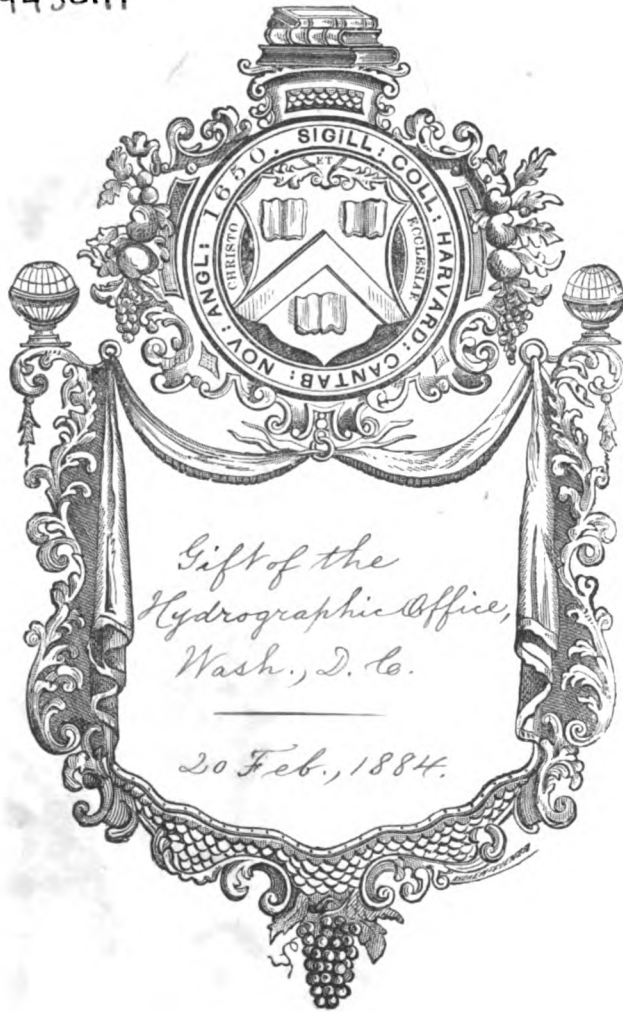 SIGILL: COLL: HARVARD: CANTAB: NOV: ANGL: 1650.
CHRISTO ET ECCLESIAE
Gift of the
Hydrographic Office,
Wash., D. C.
20 Feb., 1884.